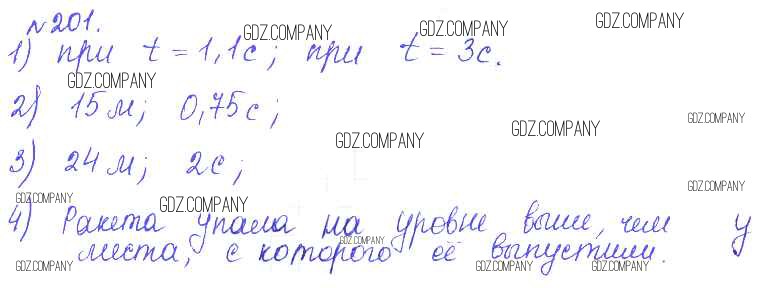 №201.
1) при t = 1,1с; при t = 3с.
2) 15м; 0,75с;
3) 24м; 2с;
4) Ракета упала на уровне выше, чем у
места, с которого её выпустили.
GDZ.COMPANY
GDZ.COMPANY
GDZ.COMPANY
GDZ.COMPANY
GDZ.COMPANY
GDZ.COMPANY
GDZ.COMPANY
GDZ.COMPANY
GDZ.COMPANY
GDZ.COMPANY
GDZ.COMPANY
GDZ.COMPANY
GDZ.COMPANY
GDZ.COMPANY